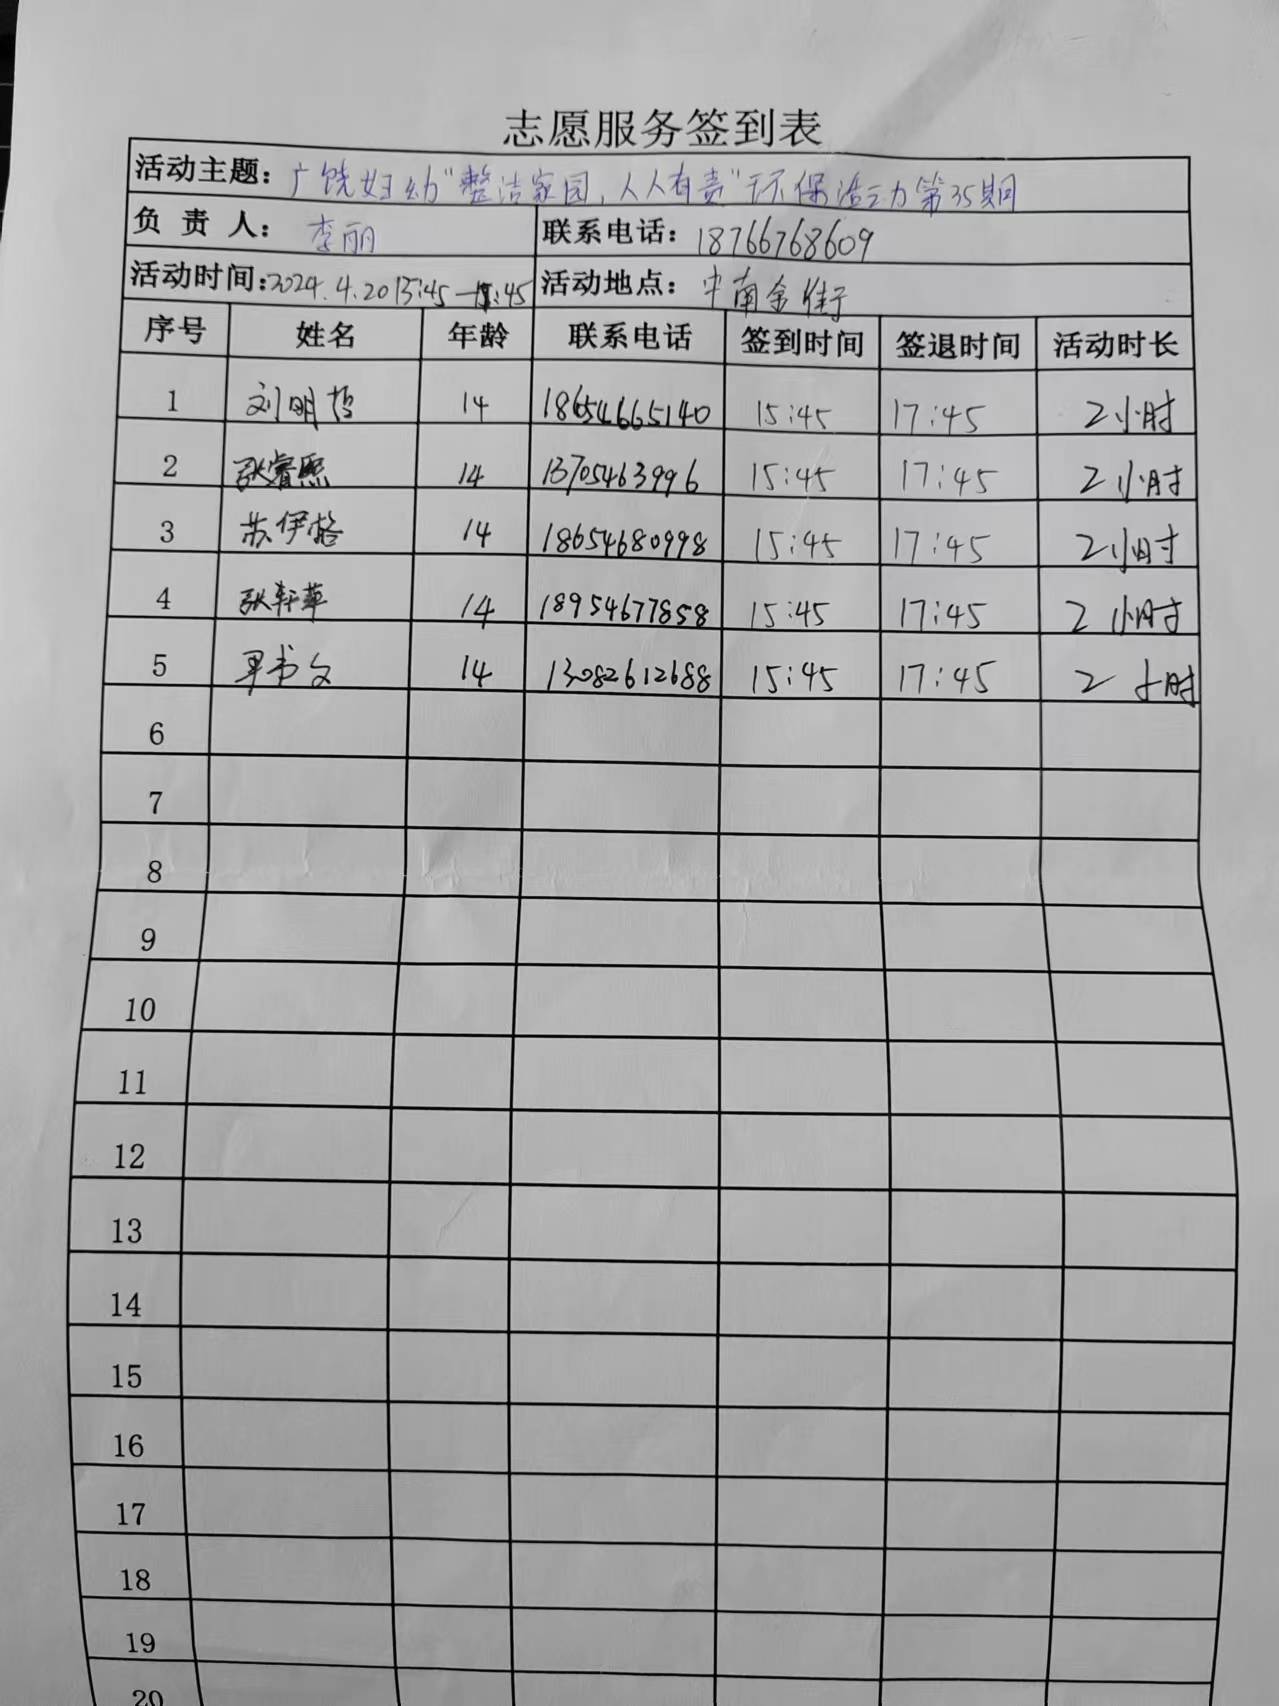 志愿服务签到表
活动主题：广饶妇幼"整洁家园，人人有责"环保活动第35期
负责人：李丽 联系电话：18766768609
活动时间：2024.4.20 15:45— :45 活动地点：中南金街
序号 姓名 年龄 联系电话 签到时间 签退时间 活动时长
1 刘明哲 14 18654665140 15:45 17:45 2小时
2 张睿熙 14 13705463996 15:45 17:45 2小时
3 苏伊格 14 18654680998 15:45 17:45 2小时
4 张轩苹 14 18954677858 15:45 17:45 2小时
5 书文 14 13082612688 15:45 17:45 2小时
6
7
8
9
10
11
12
13
14
15
16
17
18
19
20